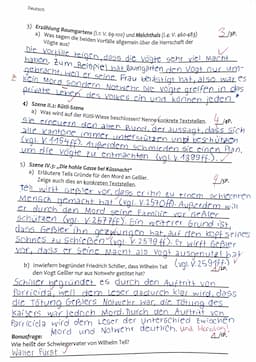 Deutsch
3) Erzählung Baumgarten (I.1: V. 69-100) und Melchthals (I.4: V. 460-483)
a) Was sagen die beiden Vorfälle allgemein über die Herrschaft der
Vögte aus?
3/3P.
Die Vorfälle zeigen, dass die Vögte sehr viel Macht
haben. Zum Beispiel hat Baumgarten den Vogt nur um-
gebracht, weil er seine Frau belästigt hat, also war es
kein Mord sondern Notwehr. Die Vögte greifen in das
private Leben des Volkes ein und können jedem
4) Szene II.2: Rütli-Szene
a) Was wird auf der Rütli-Wiese beschlossen? Nenne konkrete Textstellen.
4/4P.
Sie erneuern den alten Bund, der aussagt, dass sich
alle Kantone immer unterstützen und beschützen
(vgl. V. 1154ff). Außerdem schmieden sie einen Plan,
um die Vögte zu entmachten (vgl. V. 1399ff).
5) Szene IV.3: „Die hohle Gasse bei Küssnacht"
a) Erläutere Tells Gründe für den Mord an Geßler.
Zeige auch dies an konkreten Textstellen.
Tell wirft Geßler vor, dass er ihn zu einem schlechten
Mensch gemacht hat (vgl. V. 2570ff). Außerdem will
er durch den Mord seine Familie vor Geßler
schützen (vgl. V. 2577ff). Ein weiterer Grund ist,
dass Geßler ihn gezwungen hat, auf den Kopf seines
Sohnes zu schießen (vgl. V. 2579ff). Er wirft Geßler
vor, dass er seine Macht als Vogt ausgenutzt hat
(vgl. V. 2591ff).
b) Inwiefern begründet Friedrich Schiller, dass Wilhelm Tell
den Vogt Geßler nur aus Notwehr getötet hat?
Schiller begründet es durch den Auftritt von
Parricida, weil dem Leser dadurch klar wird, dass
die Tötung Geßlers Notwehr war, die Tötung des
Kaisers war jedoch Mord. Durch den Auftritt von
Parricida wird dem Leser der Unterschied zwischen
Mord und Notwehr deutlich.
Bonusfrage:
Wie heißt der Schwiegervater von Wilhelm Tell?
Walter Fürst